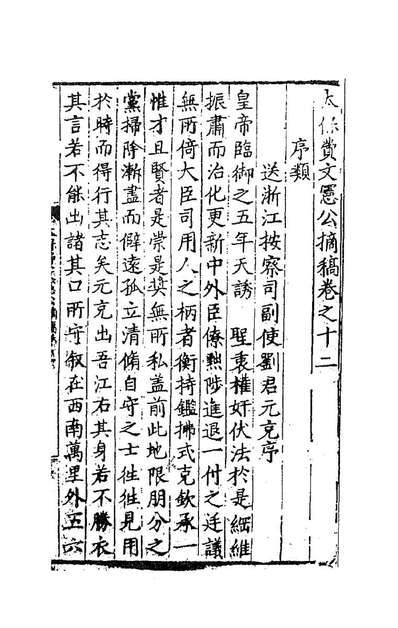 太保費文憲公摘稿卷之十二
序類
送浙江按察司副使劉君元充序
皇帝臨御之五年天誘 聖衷權奸伏法於是綱維
振肅而治化更新中外臣僚黜陟進退一付之廷議
無所倚大臣司用人之柄者衡持鑑拂式克欽承一
惟才且賢者是崇是奬無所私蓋前此地限朋分之
黨掃除漸盡而僻遠孤立清脩自守之士徃徃見用
於時而得行其志矣元充出吾江右其身若不勝衣
其言若不能出諸其口所守叙在西南萬里外五六